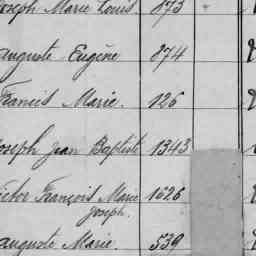 Joseph Marie Louis 873
auguste Eugène 874
Francis Marie. 126
Joseph Jean Baptiste 1343
Victor François Marie 1626
Joseph.
auguste Marie. 539